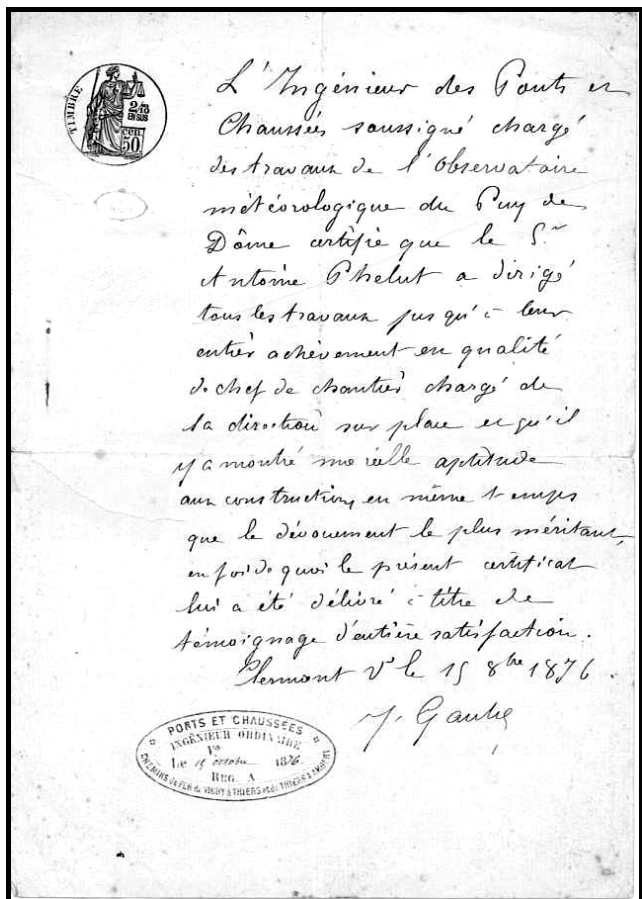 TIMBRE
2/10
EN SUS
50
CEN
L'Ingénieur des Ponts et
Chaussées soussigné chargé
des travaux de l'Observatoire
météorologique du Puy de
Dôme certifie que le Sr
Antoine Phelut a dirigé
tous les travaux jusqu'à leur
entier achèvement en qualité
de chef de chantier chargé de
la direction sur place et qu'il
y a montré une réelle aptitude
aux constructions, en même temps
que le dévouement le plus méritant,
en foi de quoi le présent certificat
lui a été délivré à titre de
témoignage d'entière satisfaction.
Clermont Fd le 15 8bre 1876.
PONTS ET CHAUSSÉES
INGÉNIEUR ORDINAIRE
Vo
Le 15 octobre 1876.
REG. A
CHEMINS de FER de VICHY à THIERS et de THIERS à AMBERT